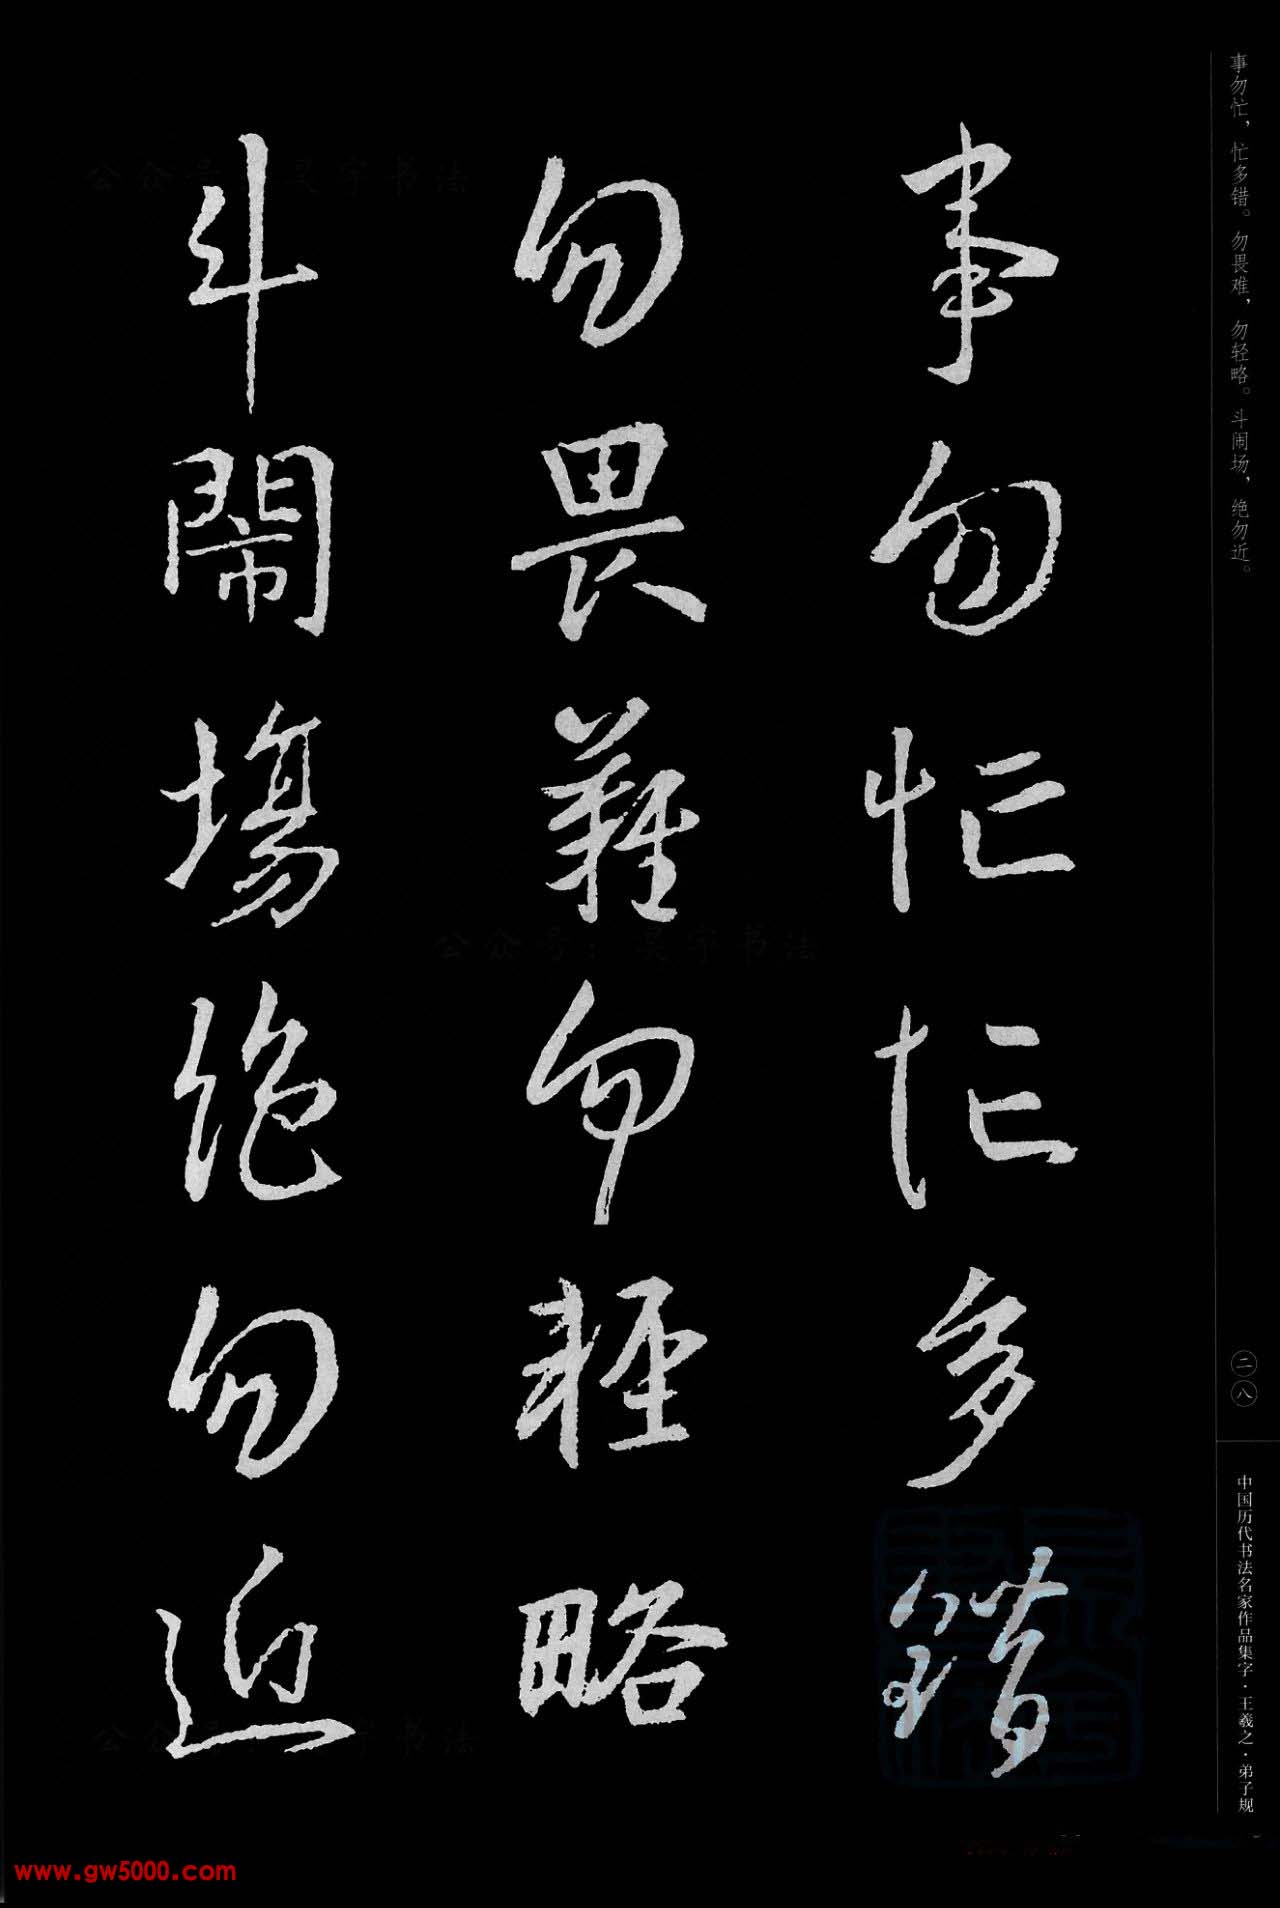 事勿忙，忙多错。勿畏难，勿轻略。斗闹场，绝勿近。
二八
中国历代书法名家作品集字·王羲之·弟子规
事勿忙忙多錯
勿畏難勿輕略
斗鬧場絕勿近
公众号：昊宇书法
公众号：昊宇书法
公众号：昊宇书法
www.gw5000.com